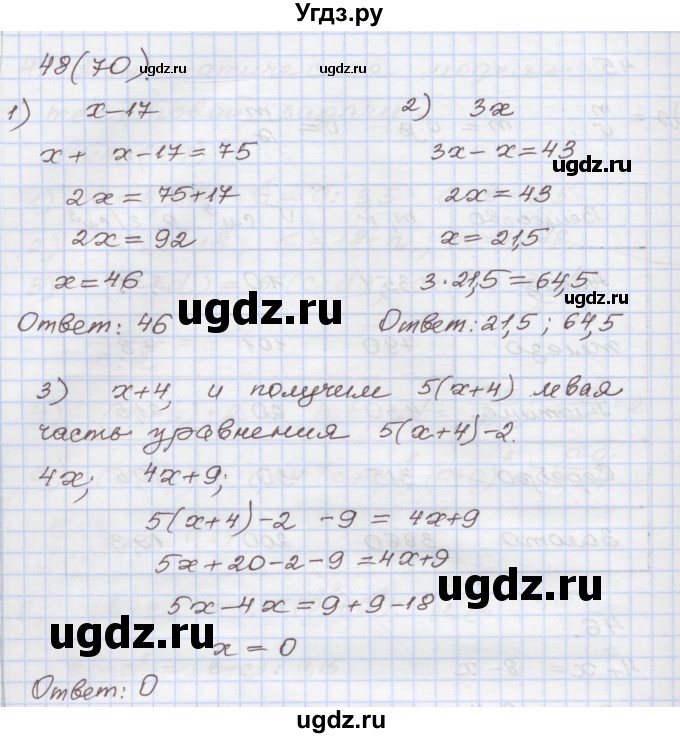 Угдз.ру
48(70).
1) x-17
x + x-17=75
2x = 75+17
2x = 92
x = 46
Ответ: 46
2) 3x
3x - x = 43
2x = 43
x = 21,5
3·21,5=64,5
Ответ: 21,5 ; 64,5
3) x+4, и получим 5(x+4) левая
часть уравнения 5(x+4)-2.
4x; 4x+9;
5(x+4)-2 -9 = 4x+9
5x+20-2-9=4x+9
5x-4x=9+9-18
x = 0
Ответ: 0
ugdz.ru
ugdz.ru
ugdz.ru
ugdz.ru
ugdz.ru
ugdz.ru
ugdz.ru
ugdz.ru
ugdz.ru